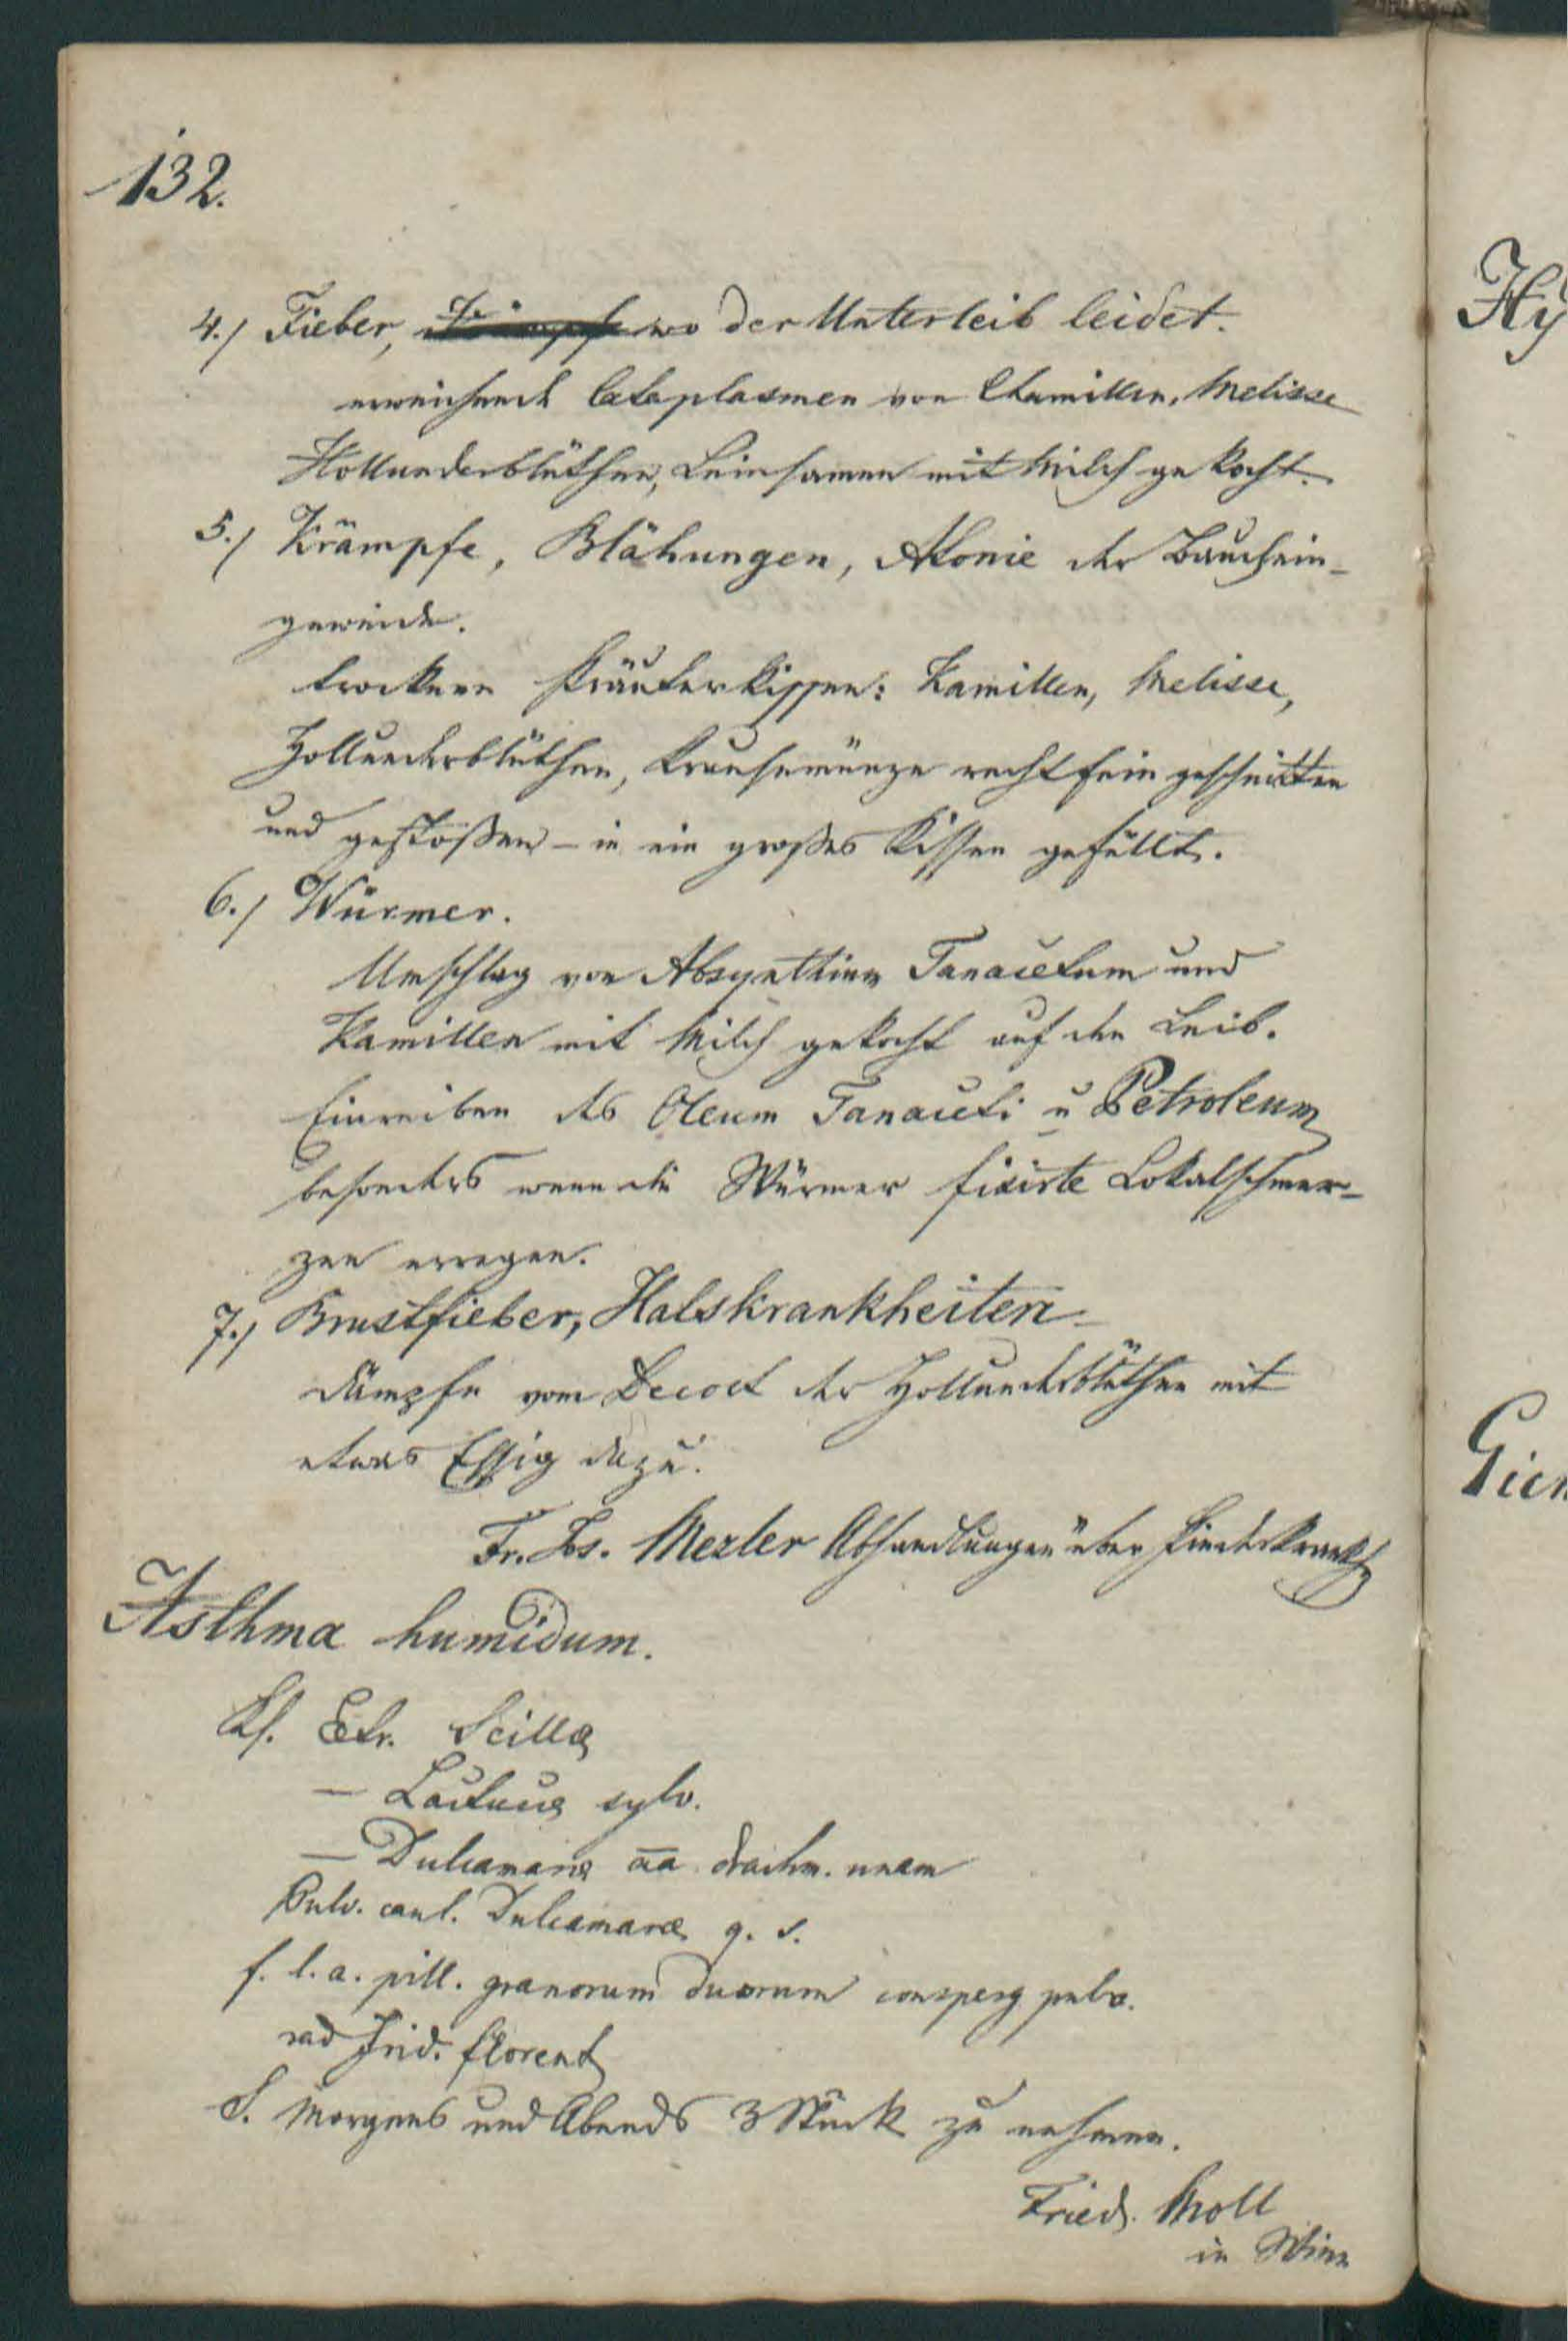 132.
4.) Fieber, wo der Unterleib leidet.
erweichende Cataplasmen von Chamillen, Melisse
Hollunderblüthen, Leinsamen mit Milch gekocht.
5.) Krämpfe, Blähungen, Atonie der Bauchein-
geweide.
trockene Kräuterkissen: Kamillen, Melisse,
Hollunderblüthen, Krausemünze recht fein geschnitten
und gestoßen – in ein großes Kissen gefüllt.
6.) Würmer.
Umschlag von Absynthium Tanacetum und
Kamillen mit Milch gekocht auf den Leib.
Einreiben des Oleum Tanaceti u Petroleum
besonders wenn die Würmer fixirte Lokalschmer-
zen erregen.
7.) Brustfieber, Halskrankheiten
Dämpfe vom Decoct der Hollunderblüthen mit
etwas Essig dazu.
Fr. Xs. Mezler Abhandlungen über Kinderkrankh
Asthma humidum.
Rf. Extr. Scillæ
– Lactucæ sylv.
– Dulcamaræ aa drachm. unam
Pulv. caul. Dulcamaræ q. s.
f. l. a. pill. granorum duorum consperg pulv.
rad Irid. florent
S. Morgens und Abends 3 Stück zu nehmen.
Fried. Moll
in Wien
Hy
Gien